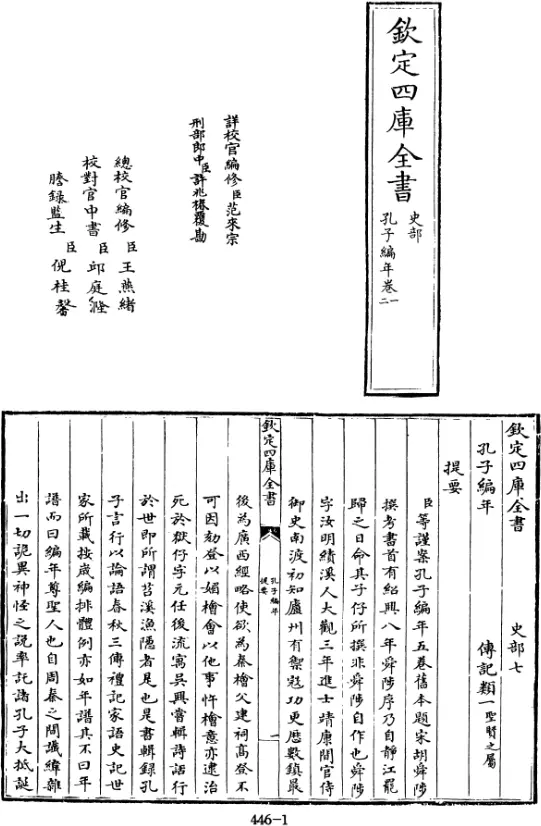 欽定四庫全書
史部
孔子編年卷一
二
詳校官編修臣范來宗
刑部郎中臣許兆椿覆勘
總校官編修臣王燕緒
校對官中書臣邱庭漋
謄錄監生臣倪桂馨
欽定四庫全書
史部七
孔子編年
傳記類一聖賢之屬
提要
臣等謹案孔子編年五卷舊本題宋胡舜陟
撰考書首有紹興八年舜陟序乃自靜江罷
歸之日命其子仔所撰非舜陟自作也舜陟
字汝明績溪人大觀三年進士靖康間官侍
御史南渡初知廬州有禦寇功更歷數鎮最
欽定四庫全書
孔子編年
提要
一
後為廣西經略使欲為秦檜父建祠高登不
可因劾登以媚檜會以他事忤檜意亦逮治
死於獄仔字元任後流寓吳興嘗輯詩話行
於世即所謂苕溪漁隱者是也是書輯錄孔
子言行以論語春秋三傳禮記家語史記世
家所載按歲編排體例亦如年譜其不曰年
譜而曰編年尊聖人也自周秦之間讖緯雜
出一切詭異神怪之說率託諸孔子大抵誕
446-1